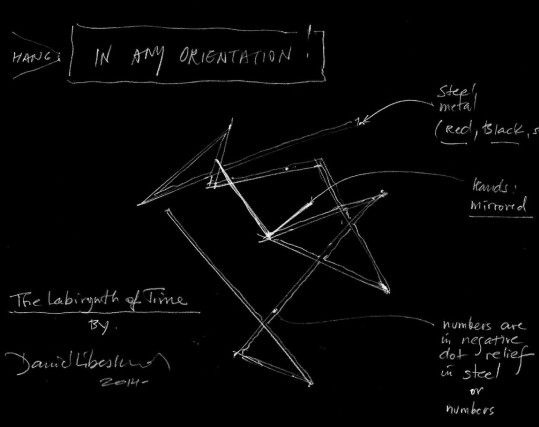 HANG:
IN ANY ORIENTATION!
Steel,
metal
(Red, Black, s
Hands:
mirrored
The Labirynth of Time
By.
Daniel Libeskind
2014-
numbers are
in negative
dot relief
in steel
or
numbers